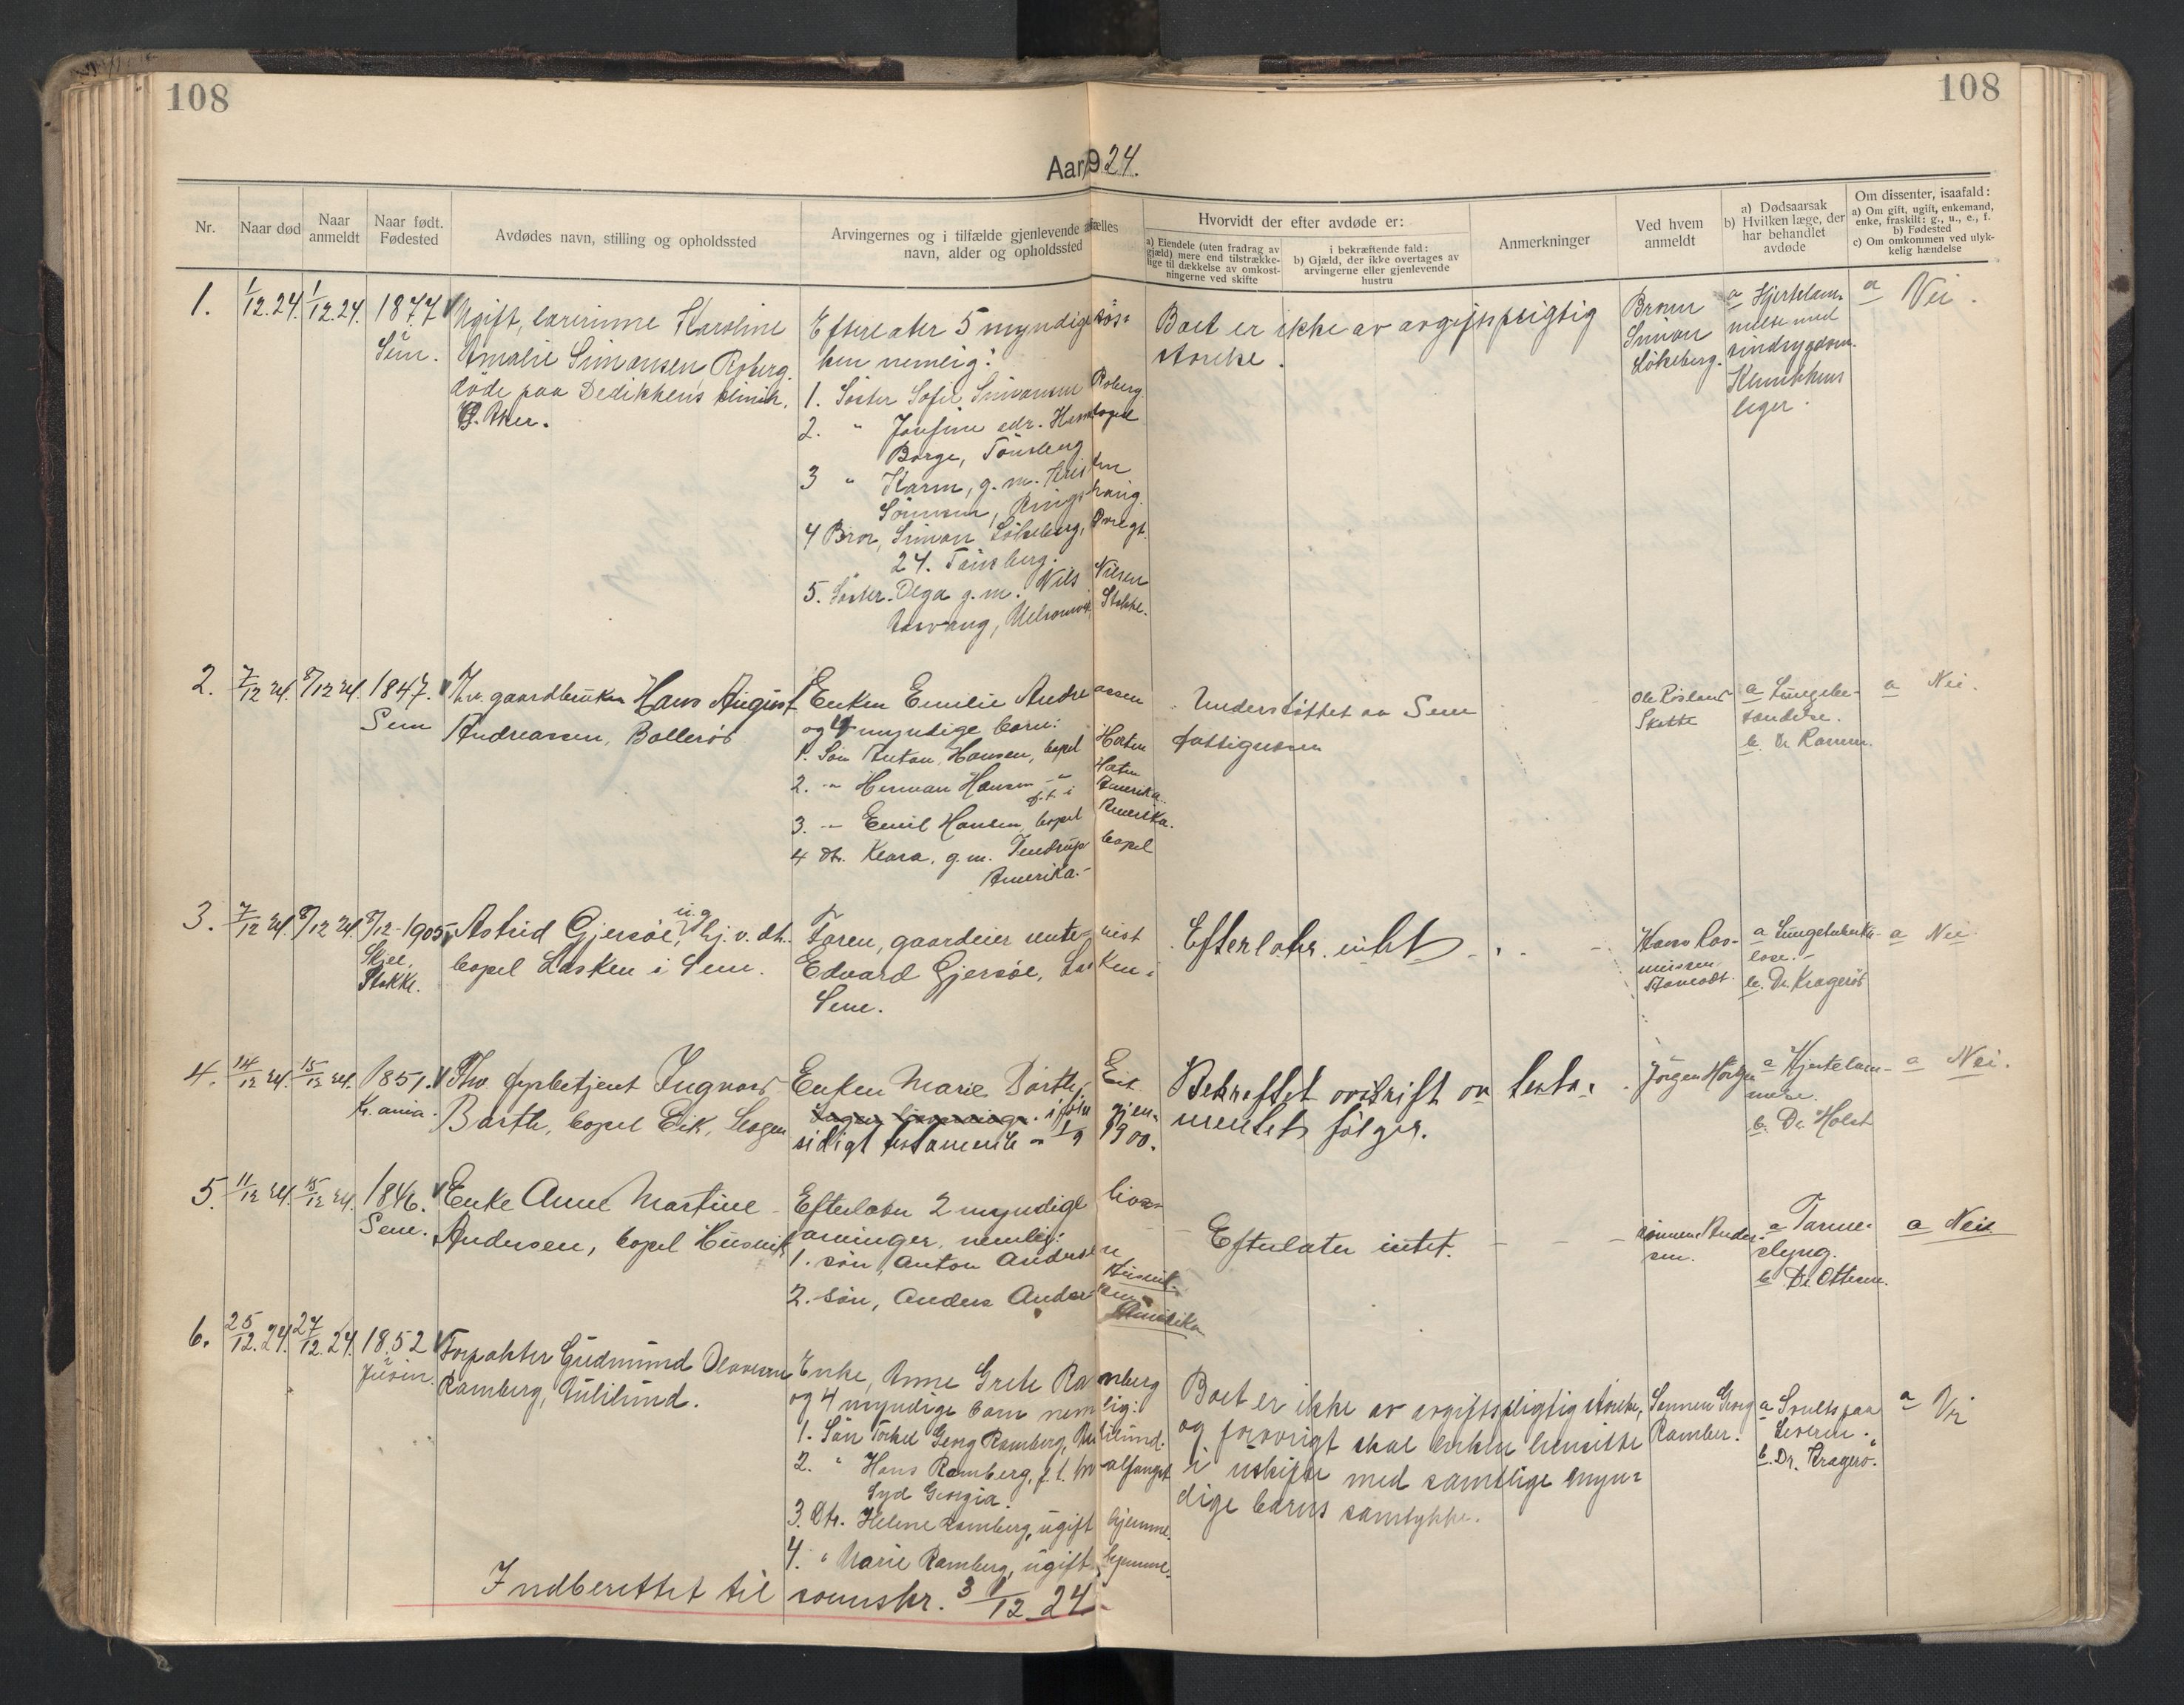 108
108
Aar 1924.
Nr.
Naar død
Naar
anmeldt
Naar født.
Fødested
Avdødes navn, stilling og opholdssted
Arvingernes og i tilfælde gjenlevende ælles
navn, alder og opholdssted
Hvorvidt der efter avdøde er:
a) Eiendele (uten fradrag av
gjæld) mere end tilstrække-
lige til dækkelse av omkost-
ningerne ved skifte
i bekræftende fald:
b) Gjæld, der ikke overtages av
arvingerne eller gjenlevende
hustru
Anmerkninger
Ved hvem
anmeldt
a) Dødsaarsak
b) Hvilken læge, der
har behandlet
avdøde
Om dissenter, isaafald:
a) Om gift, ugift, enkemand,
enke, fraskilt: g., u., e., f.
b) Fødested
c) Om omkommen ved ulyk-
kelig hændelse
1.
1/12.24.
1/12.24.
1877
Sem.
Ugift, lærerinne Karoline
Amalie Simonsen, Roberg.
døde paa Dedikhens klinik,
V. Aker.
Efterlater 5 myndige søs-
ken nemlig:
1. Søster Sofie Simonsen Roberg.
2. " Josefine adr. Handlogud
Borge, Tønsberg
3 " Karen, g. m. Kristen
Sønnesen, Ringshaug.
4 Bror, Simon Løkeberg,
24. Tønsberg.
5. Søster Olga g. m. Nils Nilsen
Melsomvik Stokke.
Boet er ikke av avgiftspligtig
størrelse.
Broren
Simon
Løkeberg.
a Hjertelam-
melse med
sindsygdom.
Klinikkens
leger.
a Nei.
2.
7/12 24.
8/12 24.
1847.
Sem
Fhv. gaardbruker Hans August
Andreassen, Bollerød
Enken Emilie Andreassen
og 4 myndige barn:
1. Søn Anton Hansen, bopel Horten
2. " Herman Hansen " Horten
f. t. i Amerika.
3. " Emil Hansen, bopel Amerika.
4 Dt. Klara, g. m. Tendrup bopel
Amerika.
Understøttet av Sem
fattigvesen
Ole Røsland
Skatte
a Lungebe-
tændelse.
b. Dr
a Nei.
3.
7/12 24.
8/12 24.
8/12-1905
Skjee,
Stokke.
Astrid Gjersøe, ug. hj. v. dt.
bopel Lasken i Sem.
Faren, gaardeier
Edvard Gjersøe, Lasken i
Sem.
Efterlater intet
Hans Ras-
mussen
a Lungetuberku-
lose.
b. Dr Kragerøe
a Nei
4.
14/12 24.
15/12 24.
1851.
Kr.ania.
Fhv. fyrbetjent Ingvar
Barth, bopel Eik, Slagen
Enken Marie Barth, Eik
i følge gjen-
sidigt testamente av 1/9 1900.
Bekreftet avskrift av testa-
mentet følger.
Jørgen
a Hjertelam-
melse.
b. Dr. Holst
a Nei.
5.
11/12 24.
15/12 24.
1846.
Sem.
Enke Anne Martine
Andersen, bopel Husvik
Efterlater 2 myndige livs-
arvinger, nemlig:
1. søn, Anton Andersen
Husvik
2. søn, Anders Andersen
Amerika
Efterlater intet.
sønnen Ander-
sen.
a Tarm-
slyng.
b Dr. Ottesen.
a Nei
6.
25/12.24.
27/12.24.
1852
Forpakter Gudmund Olavesen
Ramberg, Lillelund.
Enke, Anne Grete Ramberg
og 4 myndige barn nemlig:
1. Søn Torkel Georg Ramberg,
2. " Hans Ramberg, f. t. hvalfangst
Syd Georgia.
3. Dtr. Helene Ramberg, ugift hjemme.
4. " Marie Ramberg, ugift, hjemme.
Boet er ikke av avgiftspligtig størrelse,
og forøvrigt skal enken hensitte
i uskifte med samtlige myn-
dige barns samtykke.
Sønnen Georg
Ramber.
a Svulst paa
Leveren.
b. Dr. Kragerø.
a Nei
Indberettet til sorenskr. 31/12 24